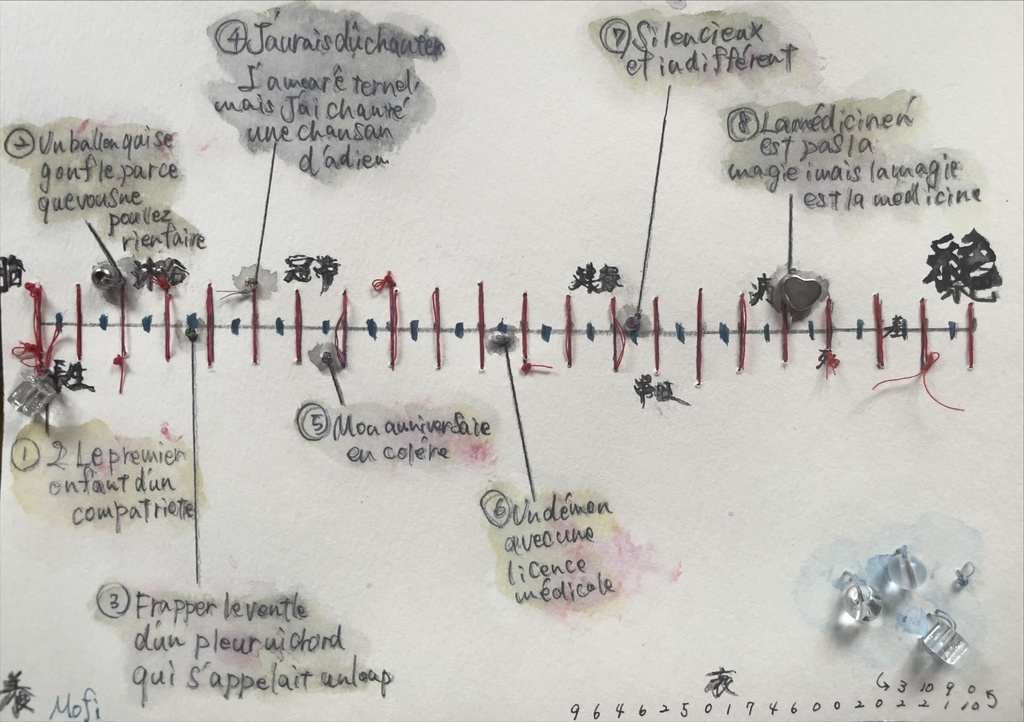 ④ J'aurais dû chanter
L'amour éternel,
mais J'ai chanté
une chanson
d'adieu
⑦ Silencieux
et indifférent
② Un ballon qui se
gonfle parce
que vous ne
pouvez
rien faire
⑧ La médicine n'
est pas la
magie mais la magie
est la medicine
胎
沐浴
冠帯
建禄
長生
帝旺
衰
病
死
墓
絶
① 2 Le premier
enfant d'un
compatriote
⑤ Mon anniversaie
en colére
⑥ Un démon
avec une
licence
médicale
③ Frapper le ventle
d'un pleurnichord
qui s'appelait un loup
養
Mofi
↳ 3 10 9 0 5
9 6 4 6 2 5 0 1 7 4 6 0 0 2 0 2 2 1 10